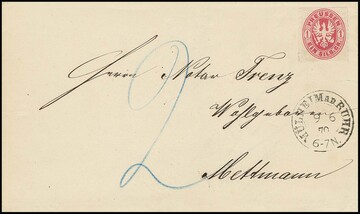 PREUSSEN
EIN SILB.GR.
Herrn Notar Trenz
Wohlgeboren
Mettmann
2
MÜLHEIM A.D. RUHR
9 6
6-7N